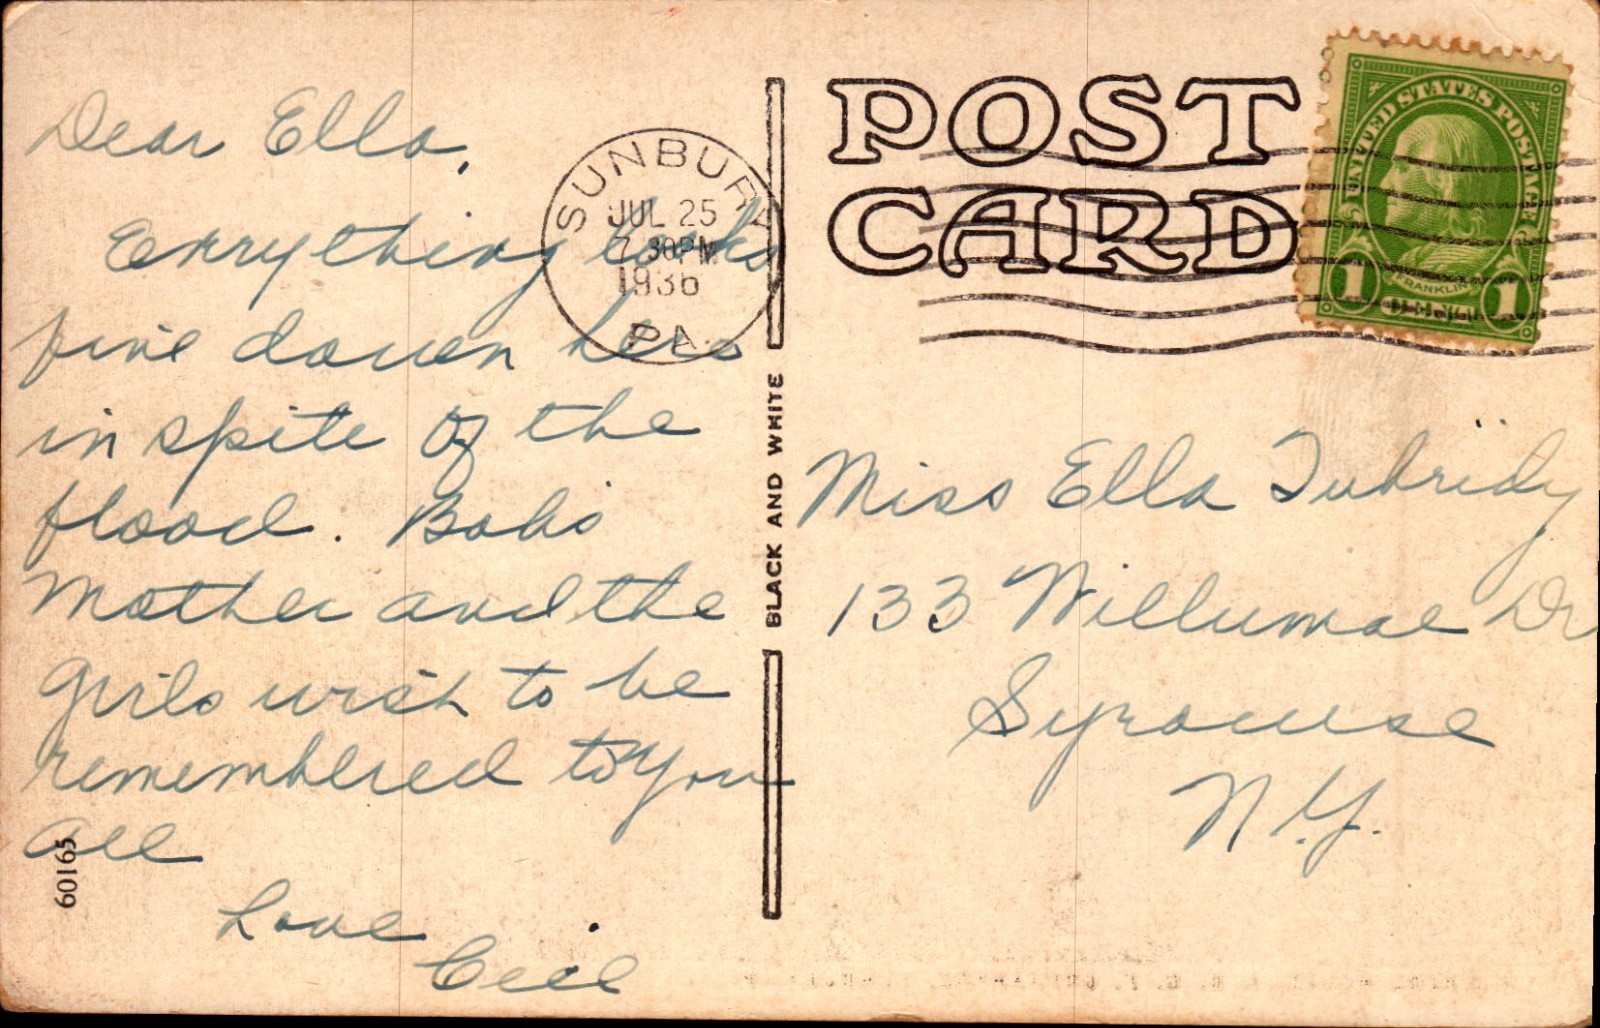 Dear Ella,
Everything looks
fine down here
in spite of the
flood. Bob's
Mother and the
girls wish to be
remembered to you
all
Love
Cecil
60165
SUNBURY
JUL 25
7 30PM
1936
PA.
BLACK AND WHITE
POST
CARD
UNITED STATES POSTAGE
FRANKLIN
1 1
Miss Ella Tubridy
133 Willumae Dr
Syracuse
N.Y.